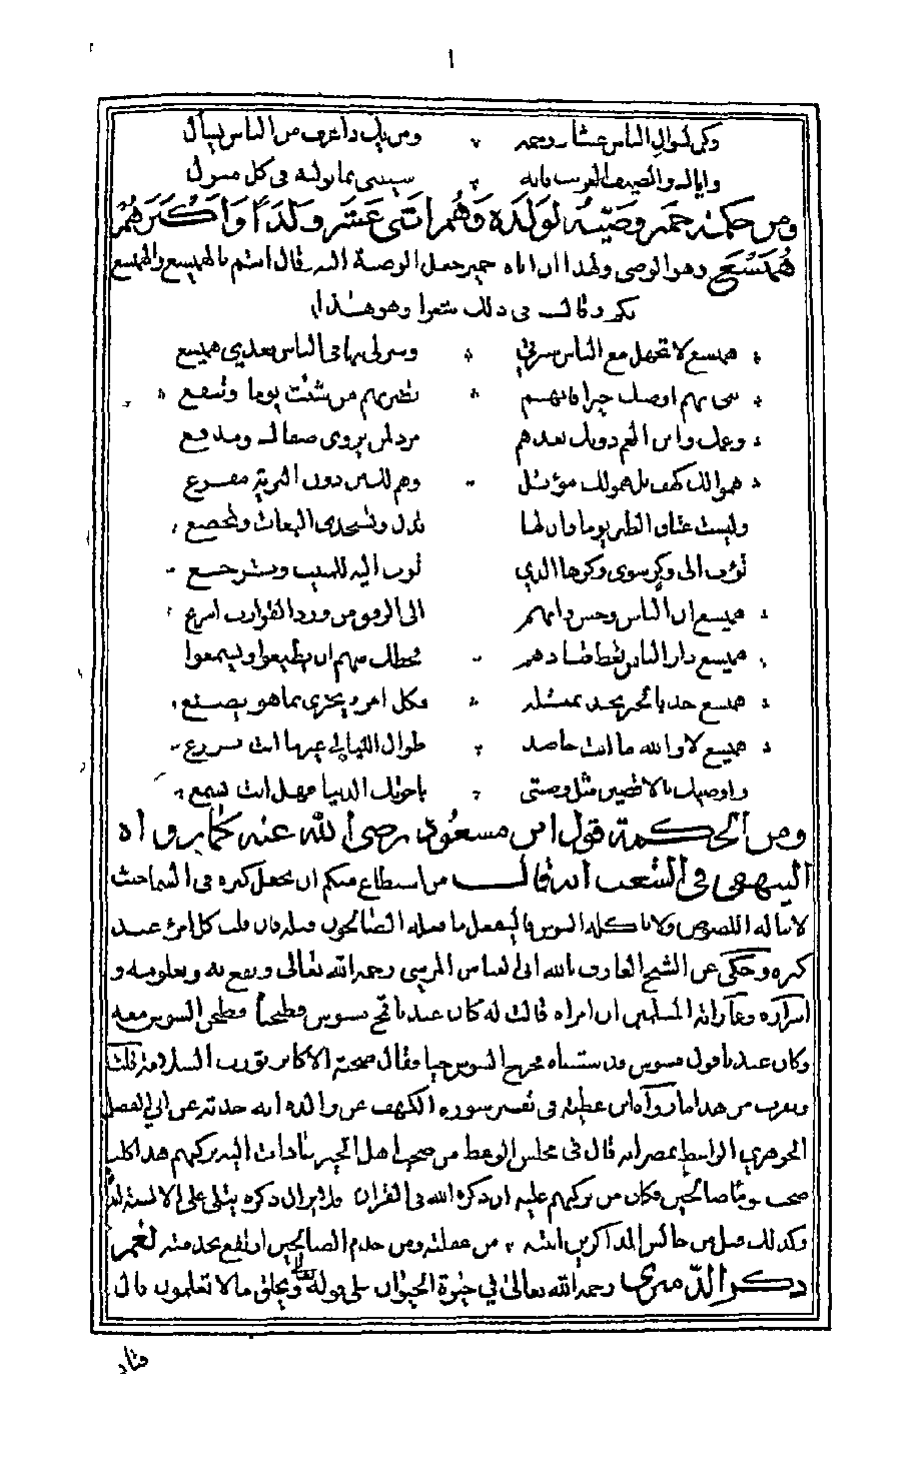 ١
وكن لنوال الناس ومن يك ذا عرف من الناس يسأل
واياك والضيف الغريب فانه سيثني بما توليه في كل منزل
ومن حكمة حمير وصيته لولده وهم اثنى عشر ولدا واكبرهم
هميسع وهو الوصي ولهذا ان اباه حمير جعل الوصية اليه فقال استم بالهميسع والهميسع
بكره وقال في ذلك شعرا وهو هذا
هميسع لا تجهل مع الناس سيرتي وسر لي بها في الناس بعدي هميسع
بهم اوصيك خيرا فانهم تضر بهم من شئت يوما وتنفع
وعمك وابن العم دونك بعدهم
هو الكهف بل هو لك موئل وهم لك من دون البرية مفزع
وليست عتاق الطير يوما وان لها تذل وتستخذي البغاث وتخضع
تؤب الى وكر سوى وكرها الذي تؤب اليه للمبيت وترجع
هميسع ان الناس وحش الى الرفق من ورد القوارب اسرع
هميسع دار الناس تعط قيادهم تحظك منهم ان يطيعوا ويسمعوا
هميسع خذ بالخير بمثله فكل امرء يجزى بما هو يصنع
هميسع لا والله ما انت حاصد طوال الليالي غير ما انت تزرع
واوصيك بالاقصين مثل وصيتي باخوتك الدنيا فهل انت تسمع
ومن الحكمة قول ابن مسعود رضي الله عنه كما رواه
البيهقي في الشعب انه قال من استطاع منكم ان يجعل كنزه في السماء حيث
لا يناله اللصوص ولا ياكله السوس فاليفعل ما فعله الصالحون قبله فان قلب كل امرئ عند
كنزه وحكي عن الشيخ العارف بالله ابي العباس المرسي رحمه الله تعالى ونفع به وبعلومه و
اسراره وعاد المسلمين ان امراة قالت له كان عندنا قمح مسوس وطحناه وطحن السوس معه
وكان عندنا فول مسوس فدششناه فخرج السوس حيا فقال صحبة الاكابر تورث السلامة قلت
ويقرب من هذا ما رواه ابن عطية في تفسير سورة الكهف عن والده انه حدثه عن ابي الفضل
الجوهري الواعظ بمصر انه قال في مجلس الوعظ من صحب اهل الخير عادات اليه بركتهم هذا كلب
صحب قوما صالحين فكان من بركتهم عليه ان ذكره الله في القران ولا يزال ذكره يتلى على الالسنة ابدا
وكذلك قيل من جالس الذاكرين انتبه من غفلته ومن خدم الصالحين ارتفع بخدمته
ذكر الدميري رحمه الله تعالى في حيوة الحيوان على قوله تعالى ويخلق ما لا تعلمون قال